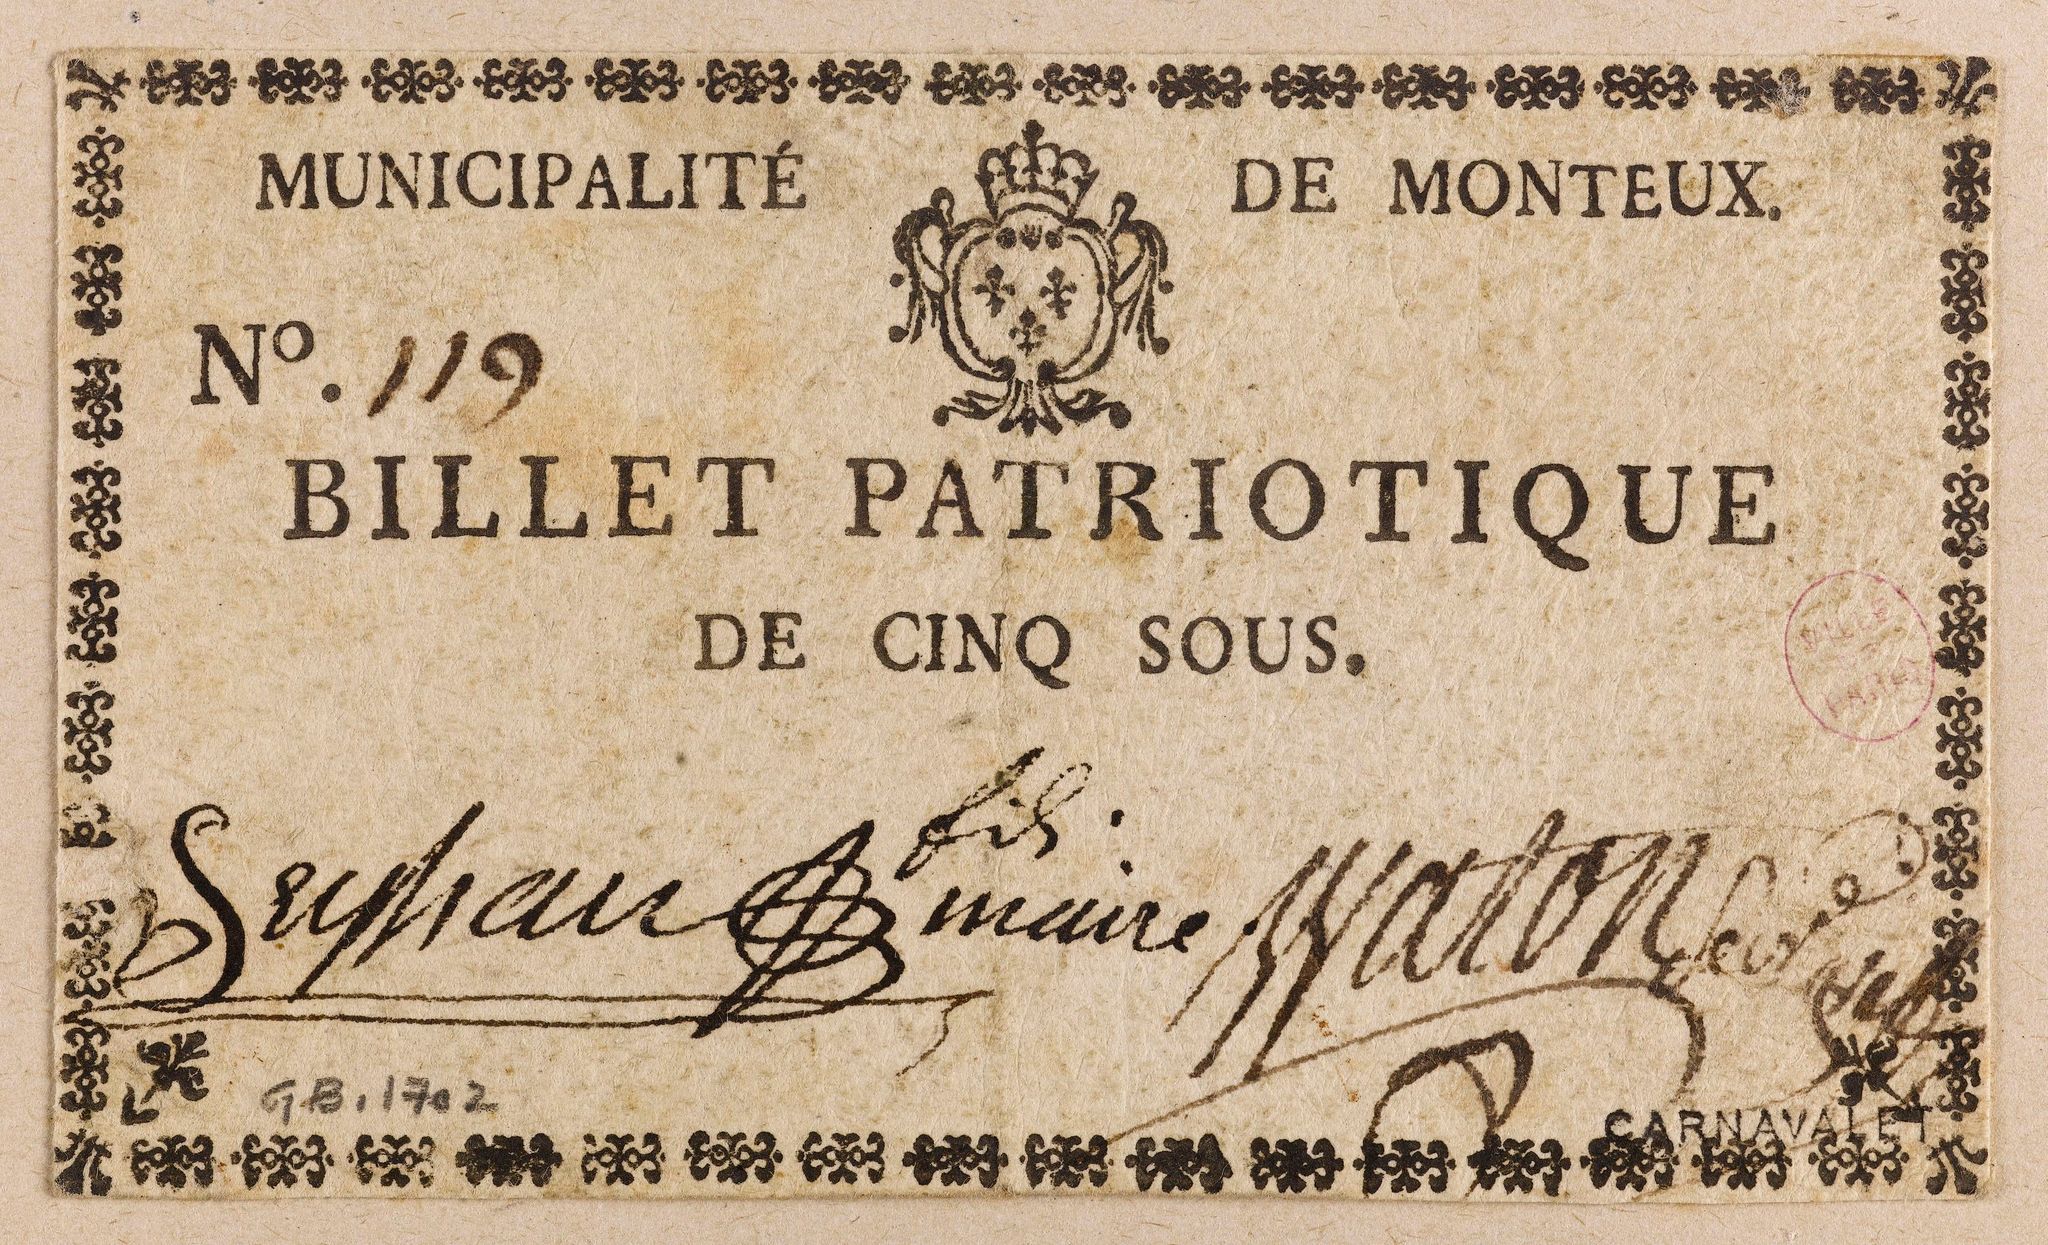 MUNICIPALITÉ DE MONTEUX.
Nº. 119
BILLET PATRIOTIQUE
DE CINQ SOUS.
VILLE
DE
PARIS
fils
maire Waton
G B. 1702
CARNAVALET